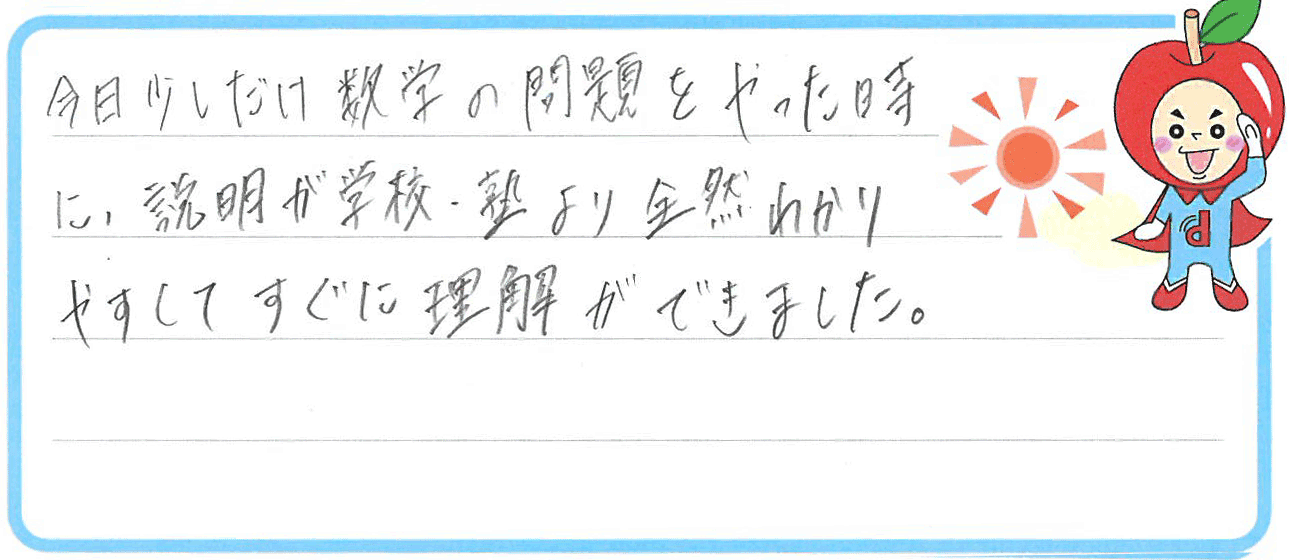 今日少しだけ数学の問題をやった時
に、説明が学校・塾より全然わかり
やすしてすぐに理解ができました。